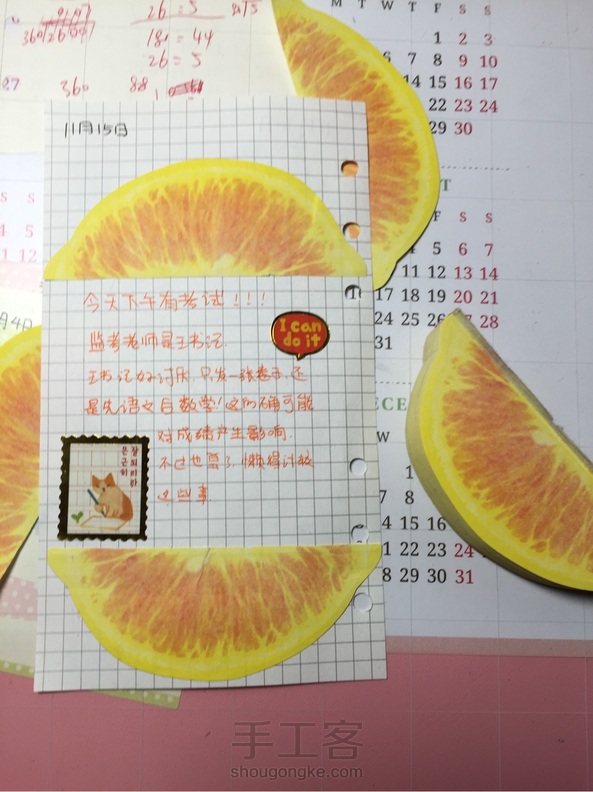 26 = 5
360
181 = 44
26 = 5
27
360
88
M T W T F S S
1 2 3
6 7 8 9 10
14 15 16 17
22 23 24
29 30
11月15日
T
F S S
4 5 6 7
11 12 13 14
17 18 19 20 21
24 25 26 27 28
31
S S
4 5
11 12
月4日
今天下午有考试！！！
I can
do it
监考老师是王书记.
王书记好讨厌.只发一张卷子.还
是先语文后数学!这的确可能
对成绩产生影响.
不过也罢了.懒得计较
这些事.
ECE
W
1
7 8
14 15 16 17
21 22 23 24
28 29 30 31
手工客
shougongke.com